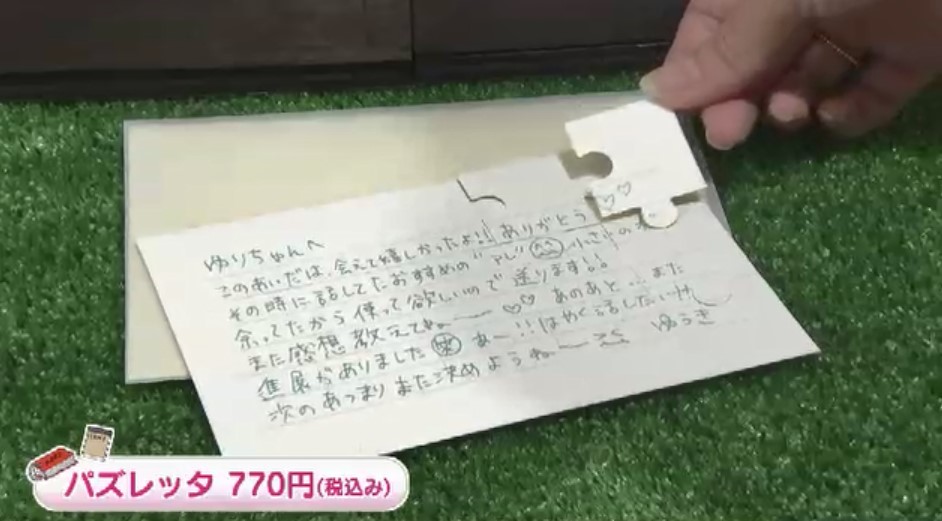 ゆりちゃんへ
このあいだは、会えて嬉しかったよ!! ありがとう♡♡
その時に話してたおすすめの"アレ" 小さい
余ってたから使って欲しいので送ります!!
また感想教えてねー♡♡ あのあと…また
進展がありました㊛ あー!!はやく話したいけ
次のあつまりまた決めようねー ゆうき
パズレッタ 770円(税込み)